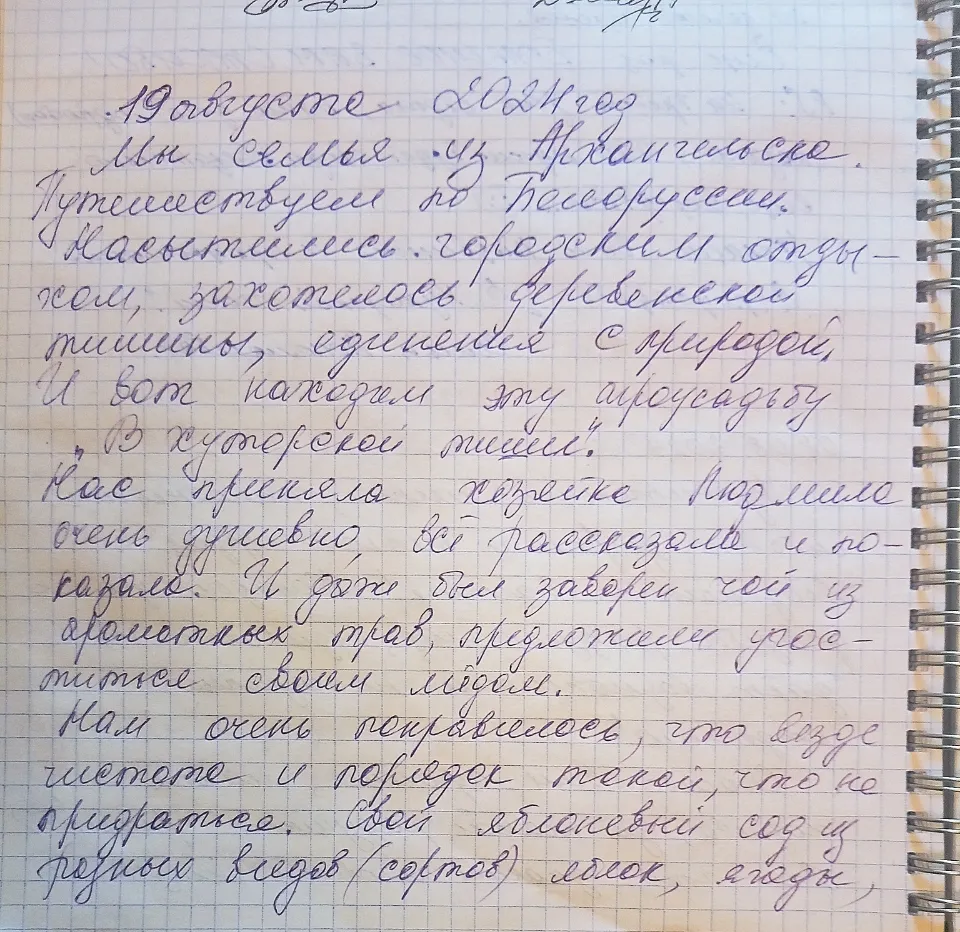 19 августа 2024 год
Мы семья из Архангельска.
Путешествуем по Белоруссии.
Насытились городским отды-
хом, захотелось деревенской
тишины, единения с природой.
И вот находим эту агроусадьбу
„В хуторской тиши".
Нас приняла хозяйка Людмила
очень душевно, всё рассказала и по-
казала. И даже был заварен чай из
ароматных трав, предложили угос-
титься своим мёдом.
Нам очень понравилось, что везде
чистота и порядок такой, что не
придраться. Свой яблоневый сад из
разных видов (сортов) яблок, ягоды,